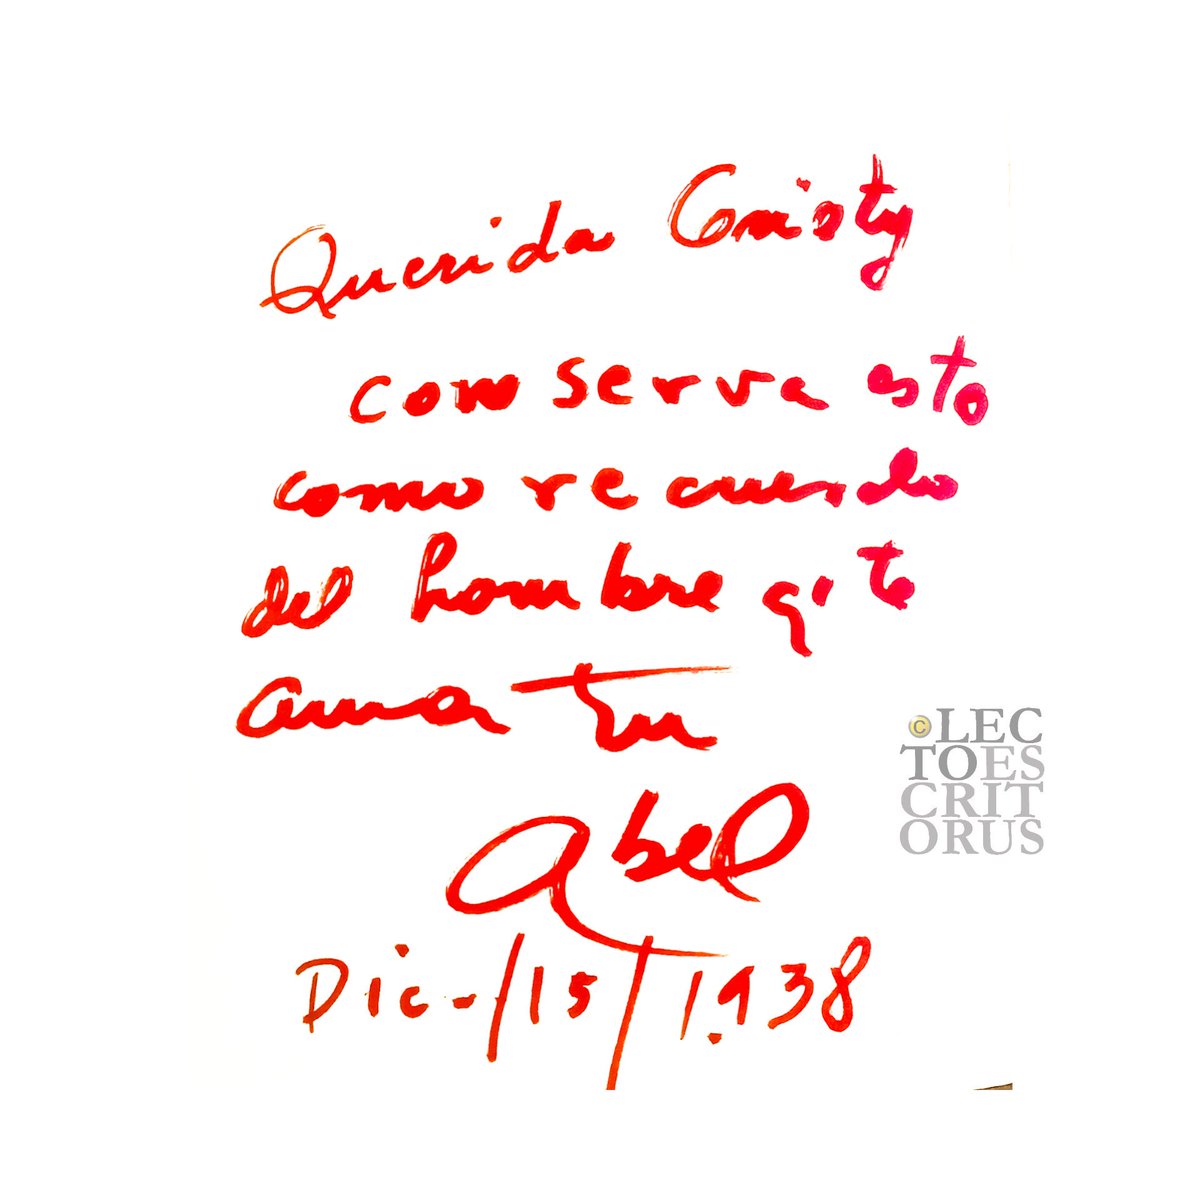 Querida Cristy
conserva esto
como recuerdo
del hombre q' te
ama tu
Abel
Dic-/15/1.938
© LEC
TOES
CRIT
ORUS